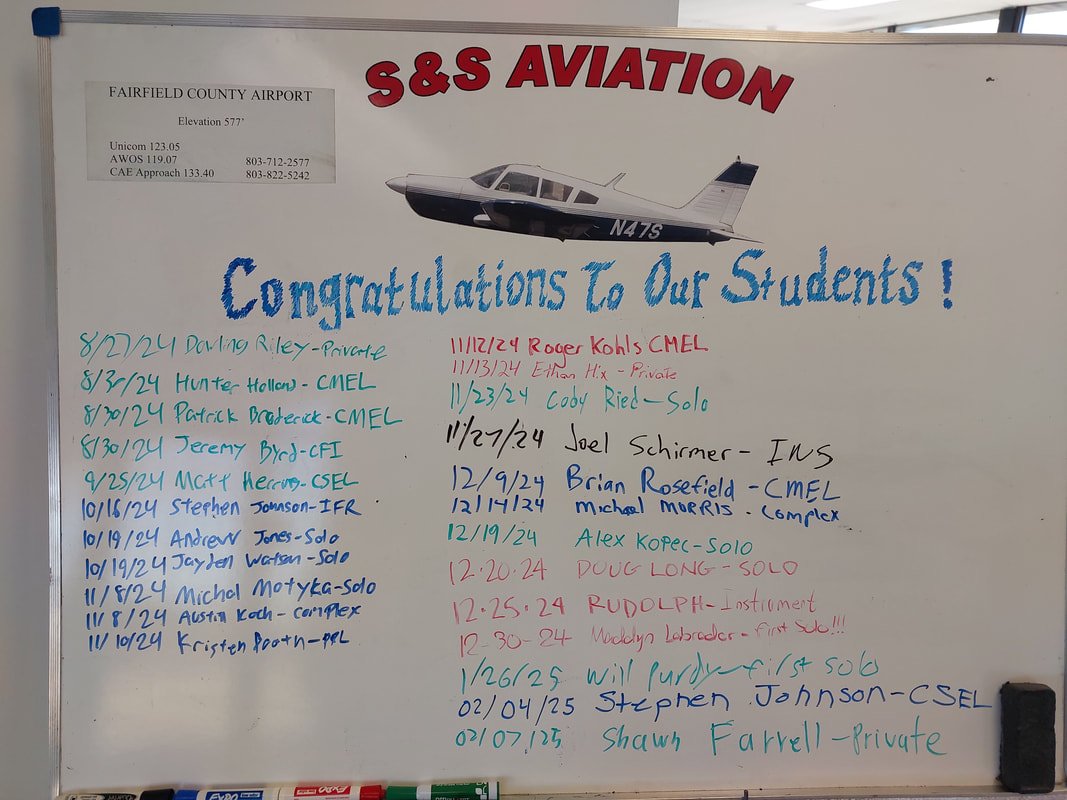 S&S AVIATION
FAIRFIELD COUNTY AIRPORT
Elevation 577'
Unicom 123.05
AWOS 119.07 803-712-2577
CAE Approach 133.40 803-822-5242
N47S
Congratulations To Our Students!
8/27/24 Darling Riley-Private
8/30/24 Hunter Holland - CMEL
8/30/24 Patrick Broderick-CMEL
8/30/24 Jeremy Byrd-CFI
9/25/24 Matt Herring-CSEL
10/16/24 Stephen Johnson-IFR
10/19/24 Andrew Jones-Solo
10/19/24 Jayden Watson-Solo
11/8/24 Michal Motyka-Solo
11/8/24 Austin Koch-complex
11/10/24 Kristen Booth-PPL
11/12/24 Roger Kohls CMEL
11/13/24 Ethan Hix - Private
11/23/24 Cody Ried-Solo
11/27/24 Joel Schirmer- INS
12/9/24 Brian Rosefield -CMEL
12/14/24 Michael MORRIS - Complex
12/19/24 Alex Kopec-Solo
12-20-24 DOUG LONG-SOLO
12-25-24 RUDOLPH-Instrument
12-30-24 Madalyn Labrador-First Solo!!!
1/26/25 Will Purdy-first solo
02/04/25 Stephen Johnson-CSEL
02/07/25 Shawn Farrell-Private
EXPO
EXPO